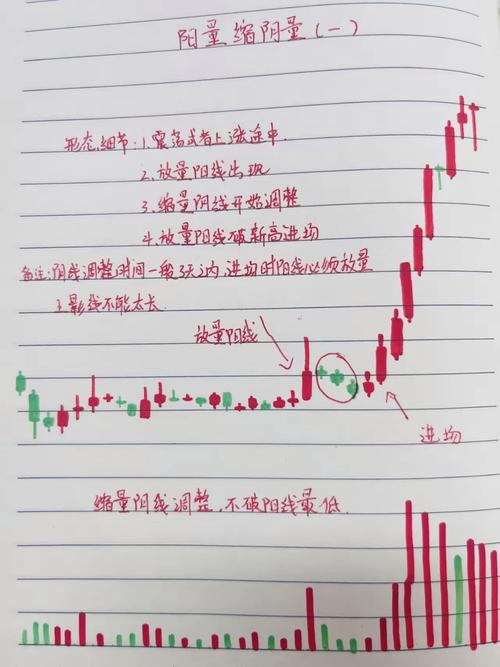 阳量缩阴量(一)
形态细节:1.震荡或者上涨途中.
2.放量阳线出现
3.缩量阴线开始调整
4.放量阳线破新高进场
备注:阴线调整时间一般3天之内,进场时阳线必须放量
且影线不能太长.
放量阳线
进场
缩量阴线调整,不破阳线最低.